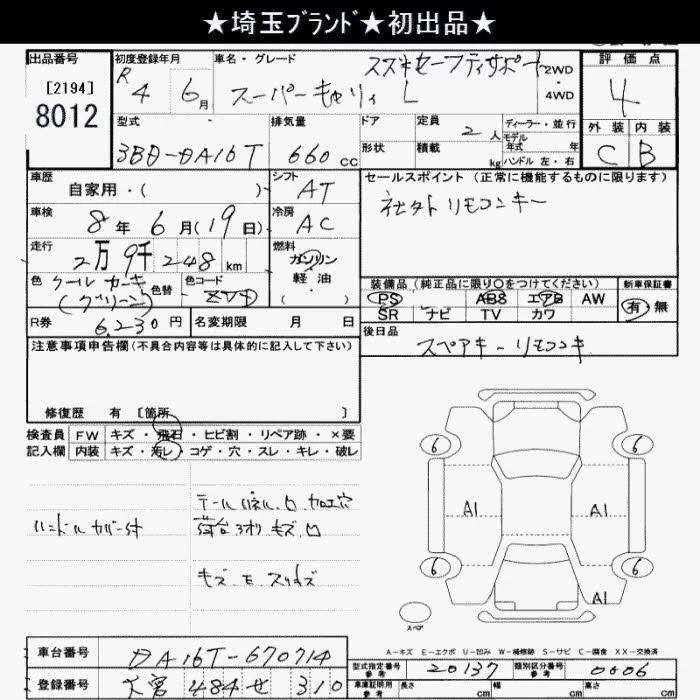 ★埼玉ﾌﾞﾗﾝﾄﾞ★初出品★
出品番号
[2194]
8012
初度登録年月
R4年6月
車名・グレード
スズキセーフティサポート
スーパーキャリィ L
2WD
4WD
評価点
4
外装 内装
C B
型式
3BD-DA16T
排気量
660cc
ドア
形状
定員 2人
積載 kg
ディーラー・並行
モデル年式 年式
ハンドル 左・右
車歴
自家用・( )
シフト
AT
車検
8年6月(19日)
冷房
AC
走行
2万9千248km
燃料
ガソリン
軽油
( )
色
クールカーキ
(グリーン)
色替
色コード
セールスポイント(正常に機能するものに限ります)
社外リモコンキー
装備品(純正品に限り○をつけてください)
PS ABS エアB AW
SR ナビ TV カワ
新車保証書
有・無
R券 6,230円
名変期限 月 日
後日品
スペアキー リモコンキー
注意事項申告欄(不具合内容等は具体的に記入して下さい)
修復歴 有 [箇所 ]
検査員
記入欄
FW キズ・飛石・ヒビ割・リペア跡・×要
内装 キズ・汚レ・コゲ・穴・スレ・キレ・破レ
ハンドルカバー付
テールパネル.ロ 加工穴
荷台 3オリ キズ.ロ
6 6
A1 A1
6 6
A1
スペア
A-キズ E-エクボ U-凹み W-補修跡 S-サビ C-腐食 XX-交換済
車台番号
DA16T-670714
登録番号
大宮 484 せ 310
型式指定番号
参考
20137
類別区分番号
参考
0006
車庫証明用
参考
長さ cm 幅 cm 高さ cm